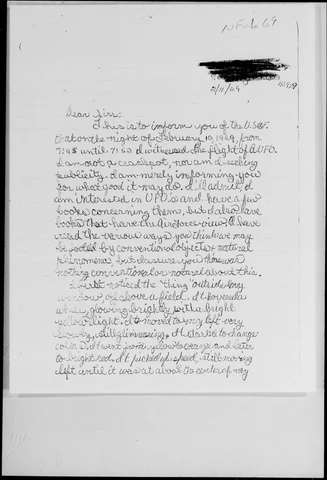 10 Feb 69
2/11/69
Dear Sirs:
This is to inform you of the U.S.A.F.
that on the night of February 10, 1969, from
7:45 until 7:50 I witnessed the flight of a UFO.
I am not a crackpot, nor am I seeking
publicity. I am merely informing you
for what good it may do. I'll admit, I
am interested in UFO's and have a few
books concerning them, but I also have
books that have the Air Force view. I have
read the various ways you think we may
be fooled by conventional objects & natural
phenomena, but I assure you there was
nothing conventional or natural about this.
I first noticed the "thing" outside my
window above a field. It hovered a
while, glowing brightly with a bright
yellow light. It moved to my left very
slowly, still glowing, it started to change
color. It went from yellow to orange and later
to bright red. It picked up speed, still moving
left until it was at about the center of my